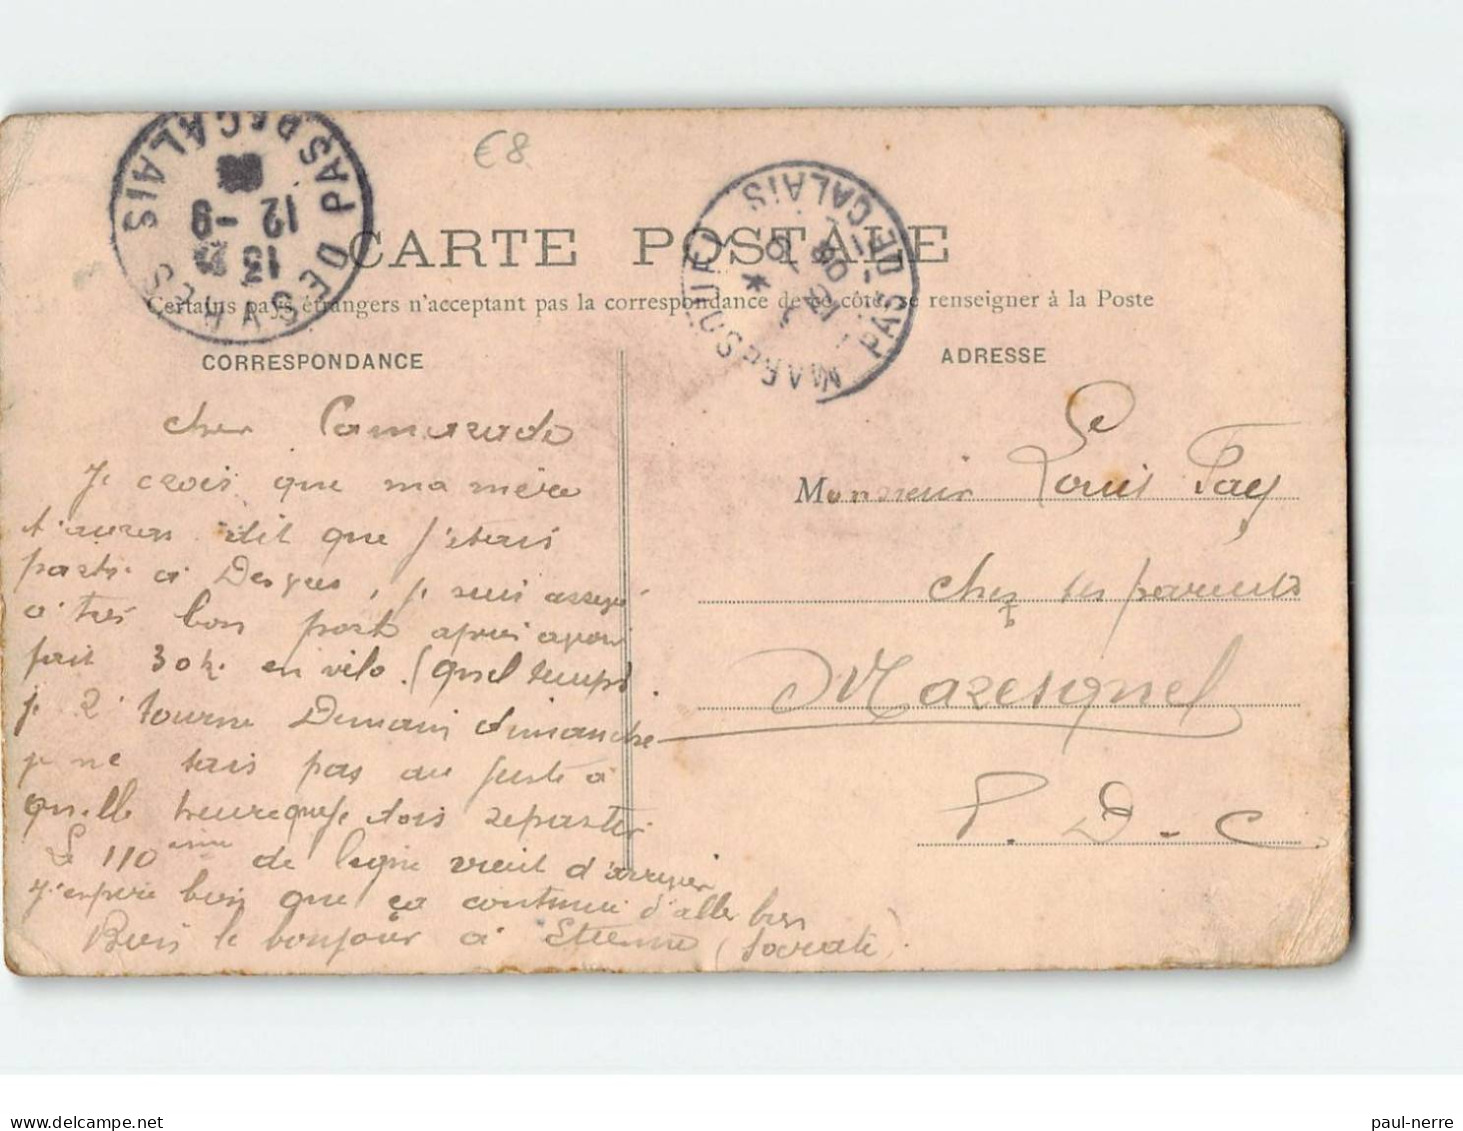 PAS DE CALAIS
13
12 - 9
DESVRES
€8
MARESQUEL PAS DE CALAIS
CARTE POSTALE
Certains pays étrangers n'acceptant pas la correspondance de ce côté, se renseigner à la Poste
CORRESPONDANCE
ADRESSE
cher Camarade
Je crois que ma mère
t'auras dit que j'etais
parti à Desvres, je suis
à très bon port après avoir
fait 30k. en vélo. (quel temps).
je 2' tourne Demain dimanche
je ne sais pas au juste à
quelle heure que je dois repartir
Le 110 ème de ligne vient d'arriver
J'espère bien que ça continue d'aller bien
Bien le bonjour à Etienne (Socrate)
Monsieur Louis Fay
chez ses parents
Maresquel
P. D. C.
paul-nerre